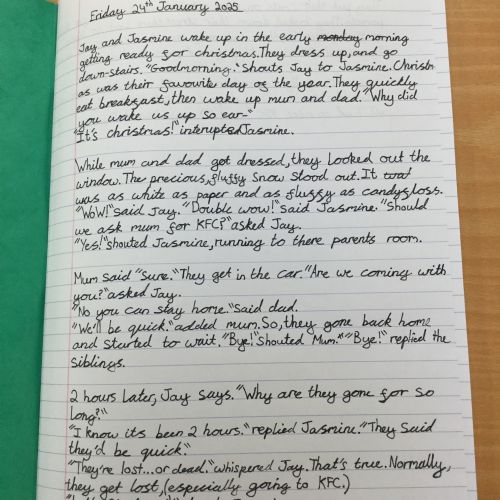 Friday 24th January 2025
Jay and Jasmine wake up in the early monday morning
getting ready for christmas. They dress up, and go
down-stairs. "Goodmorning." Shouts Jay to Jasmine. Christm
as was their favourite day of the year. They quickly
eat breakfast, then wake up mum and dad. "Why did
you wake us up so ear-"
"It's christmas!" interupted Jasmine.
While mum and dad got dressed, they looked out the
window. The precious, fluffy snow stood out. It
was as white as paper and as fluffy as candyfloss.
"WoW!" said Jay. "Double wow!" said Jasmine. "Should
we ask mum for KFC?" asked Jay.
"Yes!" shouted Jasmine, running to there parents room.
Mum said "Sure." They get in the car. "Are we coming with
you?" asked Jay.
"No you can stay home." said dad.
"We'll be quick." added mum. So, they gone back home
and started to wait. "Bye!" shouted Mum. "Bye!" replied the
siblings.
2 hours later, Jay says. "Why are they gone for so
long?"
"I know its been 2 hours." replied Jasmine. "They said
they'd be quick."
"They're lost...or dead." whispered Jay. That's true. Normally,
they get lost, (especially going to KFC.)